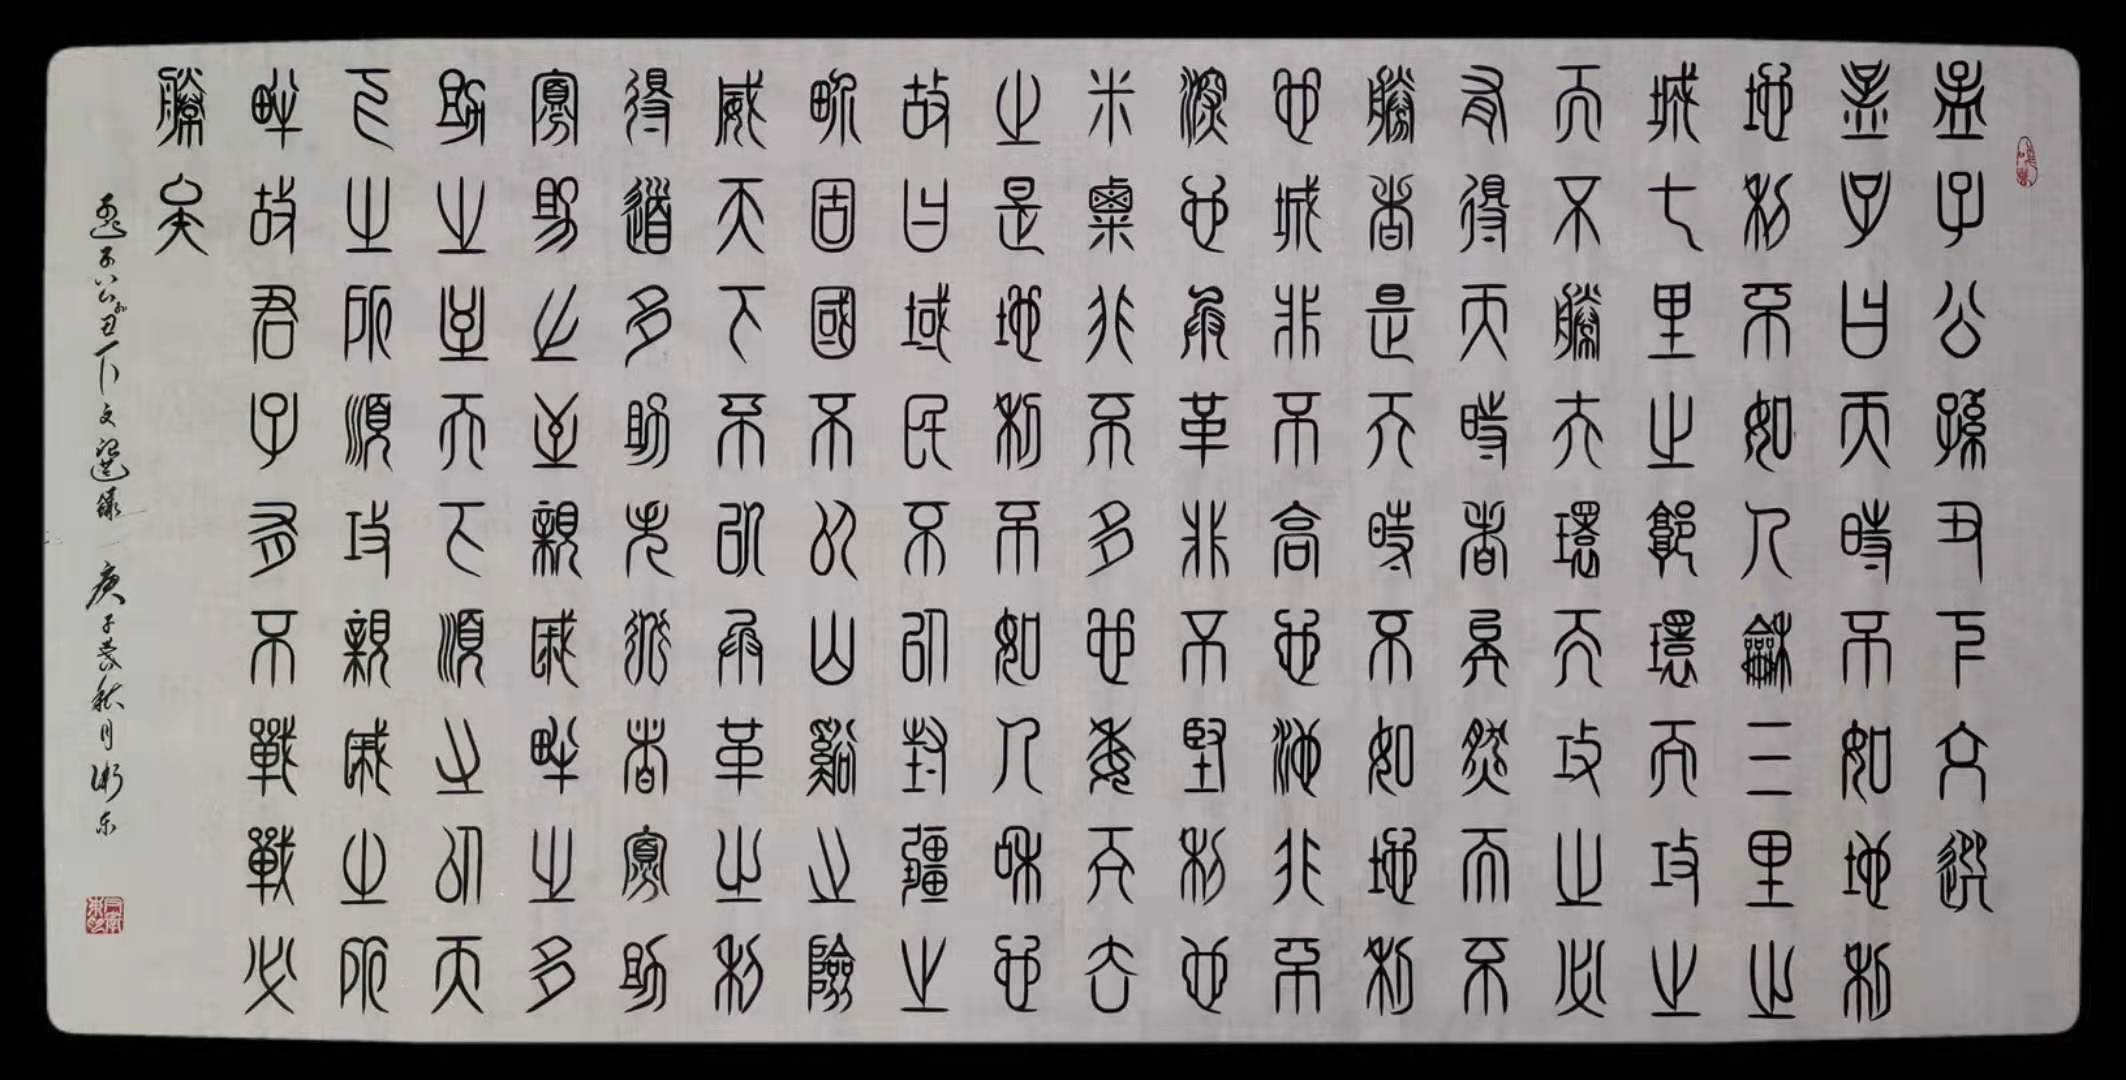 孟子公孫丑下文選
孟子曰天時不如地利
地利不如人龢三里之
城七里之郭環而攻之
而不勝夫環而攻之必
有得天時者矣然而不
勝者是天時不如地利
也城非不高也池非不
深也兵革非不堅利也
米粟非不多也委而去
之是地利不如人和也
故曰域民不以封疆之
界固國不以山谿之險
威天下不以兵革之利
得道多助失道者寡助
寡助之至親戚畔之多
助之至天下順之以天
下之所順攻親戚之所
畔故君子有不戰戰必
勝矣
孟子公孙丑下文選錄 庚子暮秋月衛东